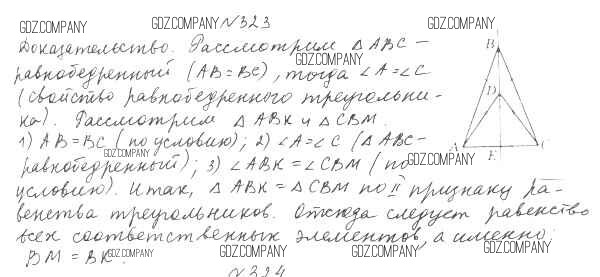 GDZ.COMPANY GDZ.COMPANY №323 GDZ.COMPANY
Доказательство. Рассмотрим △ABC –
равнобедренный (AB=BC), тогда ∠A=∠C
(свойство равнобедренного треугольни-
ка). Рассмотрим △ABK и △CBM.
1) AB=BC (по условию); 2) ∠A=∠C (△ABC-
равнобедренный); 3) ∠ABK=∠CBM (по
условию). Итак, △ABK=△CBM по II признаку ра-
венства треугольников. Отсюда следует равенство
всех соответственных элементов, а именно:
BM = BK.
№324
B
D
A E C
GDZ.COMPANY
GDZ.COMPANY
GDZ.COMPANY
GDZ.COMPANY
GDZ.COMPANY
GDZ.COMPANY
GDZ.COMPANY
GDZ.COMPANY
GDZ.COMPANY
GDZ.COMPANY